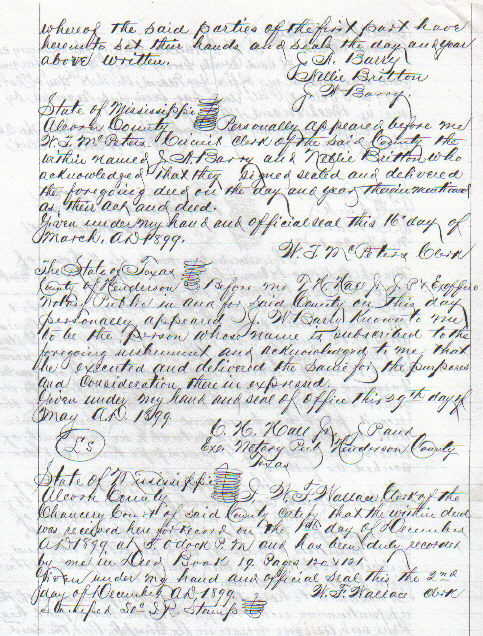 whereof the said parties of the first part have
hereunto set their hands and seals the day and year
above written. J. A. Barry
Nellie Britton
J. W. Barry.
State of Mississippi
Alcorn County Personally appeared before me
W. T. McPeters Circuit Clerk of the said County the
within named J. A. Barry and Nellie Britton who
acknowledged that they signed sealed and delivered
the foregoing deed on the day and year therein mentioned
as their act and deed.
Given under my hand and official seal this 16th day of
March, A.D. 1899.
W. T. McPeters Clerk
The State of Texas
County of Henderson Before me Hall Jr J. P. & Exofficio
Notary Public in and for said County on this day
personally appeared J. W. Barry Known to me
to be the person whose name is subscribed to the
foregoing instrument and acknowledged to me that
he executed and delivered the same for the purposes
and Consideration therein expressed.
Given under my hand and seal of office this 29th day of
May A.D. 1899
Hall Jr J. P. and
LS Exo. Notary Pub Henderson County
Texas
State of Mississippi
Alcorn County I, W. T. Wallace Clerk of the
Chancery Court of said County certify that the within deed
was received here for record on the 1st day of December
A.D. 1899 at O'clock P. M and has been duly recorded
by me in Deed Book 19 Pages 120 & 121
Given under my hand and official seal this the 2nd
day of December A.D. 1899. W. T. Wallace Clerk
Stamps